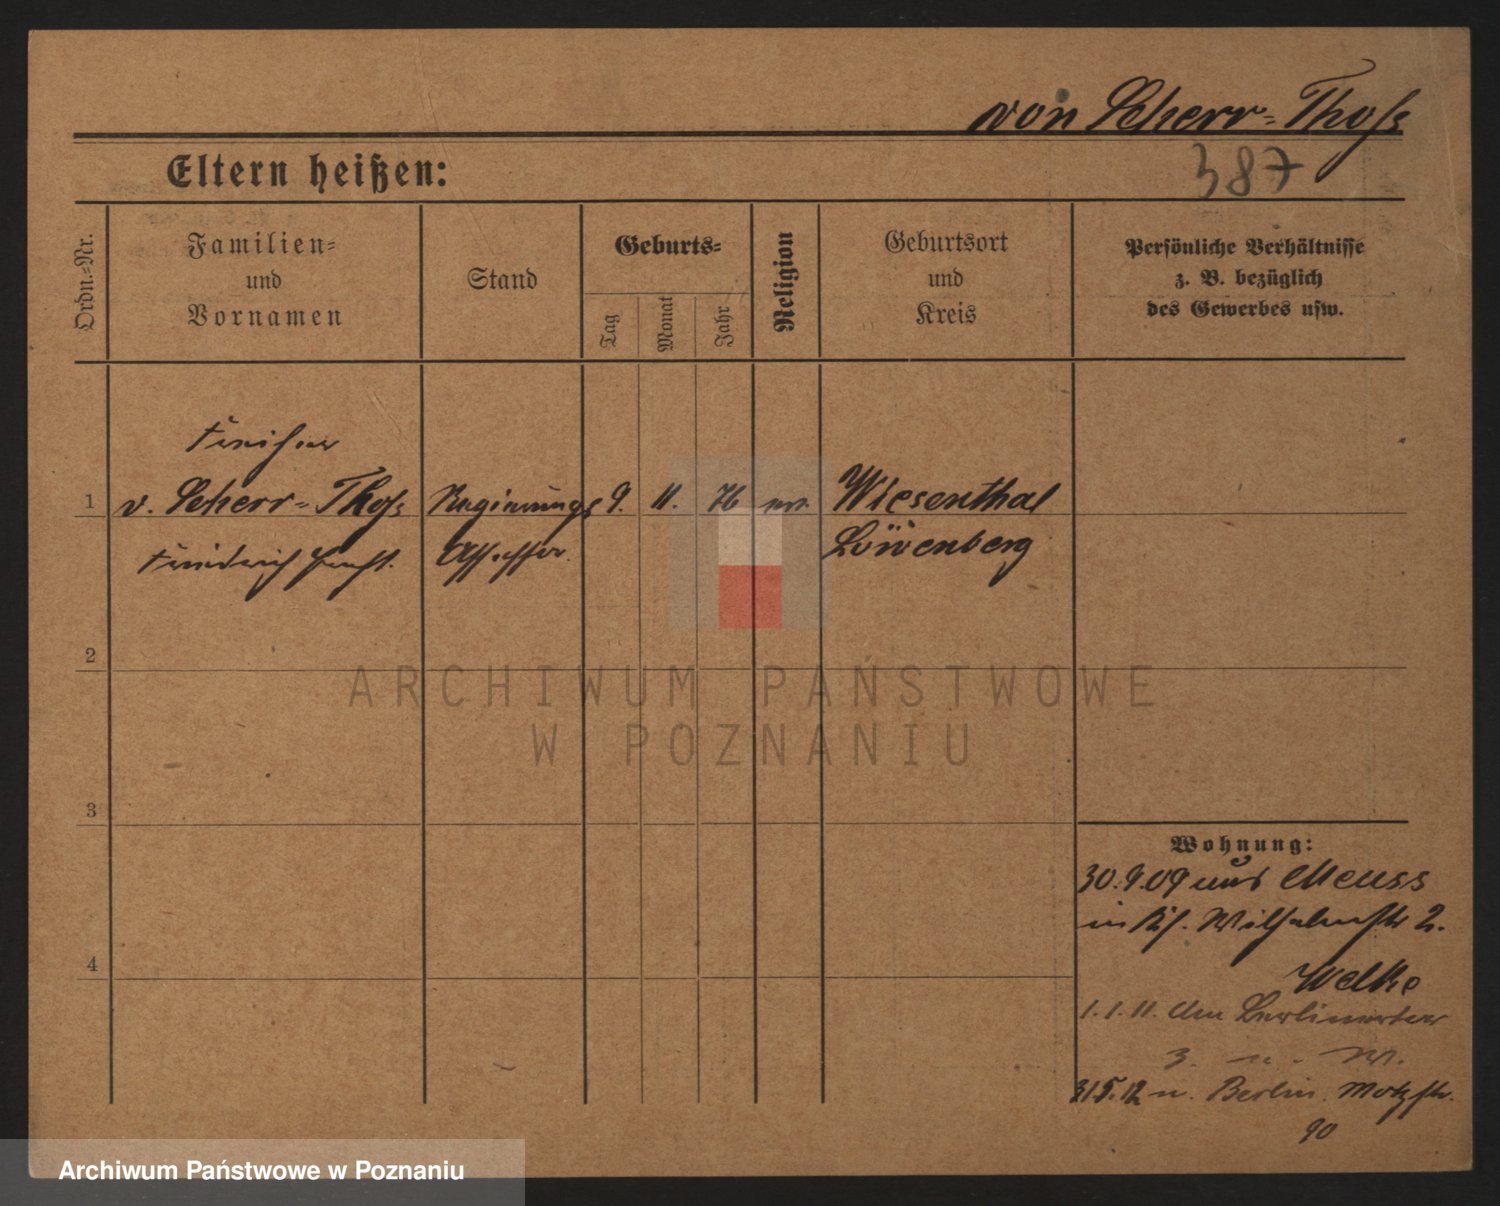 von Scherr-Thoß
387
Eltern heißen:
Ordn.-Nr.
Familien-
und
Vornamen
Stand
Geburts-
Tag
Monat
Jahr
Religion
Geburtsort
und
Kreis
Persönliche Verhältnisse
z. B. bezüglich
des Gewerbes usw.
Freiherr
1 v. Scherr-Thoß Regierungs 9. 11. 76 ev. Wiesenthal
Friedrich Assessor Löwenberg
2
ARCHIWUM PAŃSTWOWE
W POZNANIU
3
Wohnung:
30.9.09 aus
in Wilhelmstr 2.
Welke
1.1.11. Am Berlinertor
3.
31.5.12 n. Berlin. Motzstr.
90
4
Archiwum Państwowe w Poznaniu